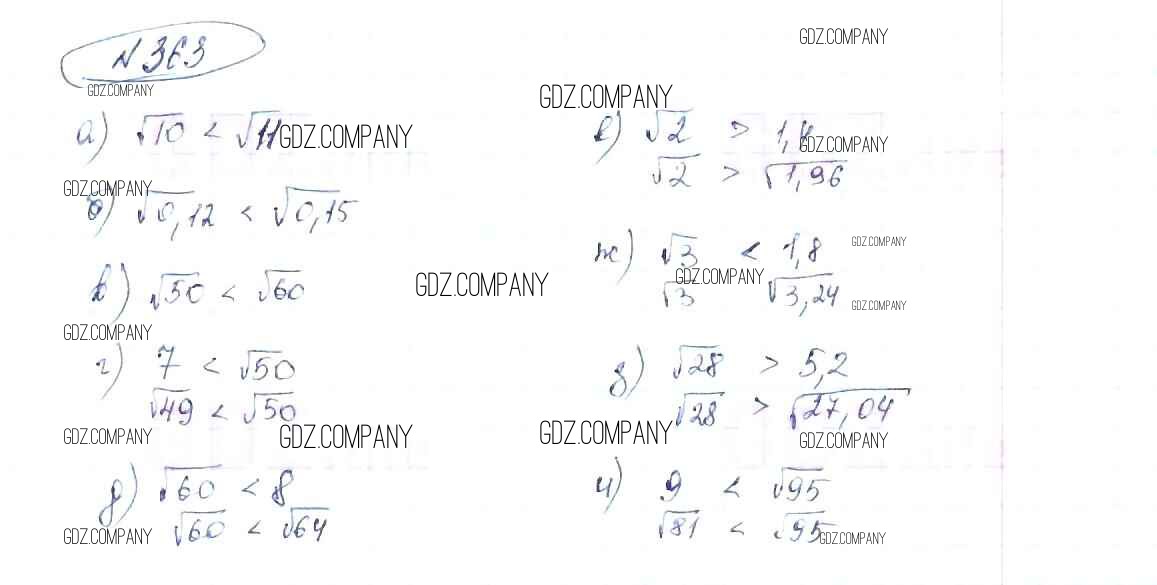 № 363
GDZ.COMPANY
GDZ.COMPANY
GDZ.COMPANY
а) √10 < √11
GDZ.COMPANY
GDZ.COMPANY
б) √0,12 < √0,15
в) √50 < √60
GDZ.COMPANY
GDZ.COMPANY
г) 7 < √50
√49 < √50
GDZ.COMPANY
GDZ.COMPANY
д) √60 < 8
√60 < √64
GDZ.COMPANY
е) √2 > 1,4
GDZ.COMPANY
√2 > √1,96
ж) √3 < 1,8
GDZ.COMPANY
GDZ.COMPANY
√3 √3,24
GDZ.COMPANY
з) √28 > 5,2
√28 > √27,04
GDZ.COMPANY
GDZ.COMPANY
и) 9 < √95
√81 < √95
GDZ.COMPANY